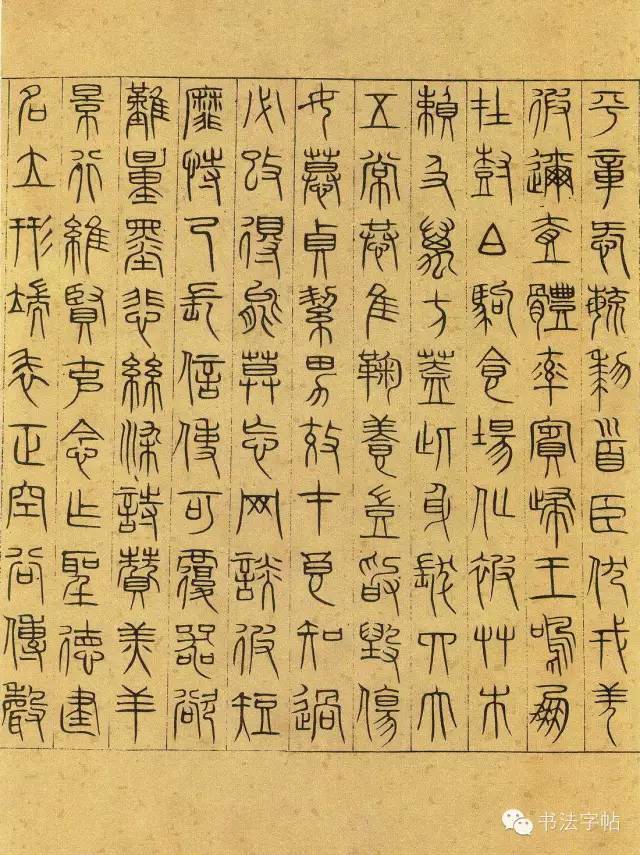 平章愛毓黎首臣伏戎羌
遐邇壹體率賓歸王鳴鳳
在尌白駒食場化被艸木
賴及萬方蓋此身髮四大
五常恭惟鞠養豈敢毀傷
女慕貞絜男效才良知過
必改得能莫忘网談彼短
靡恃己長信使可覆器欲
難量墨悲絲染詩贊羔羊
景行維賢克念作聖德建
名立形端表正空谷傳聲
书法字帖